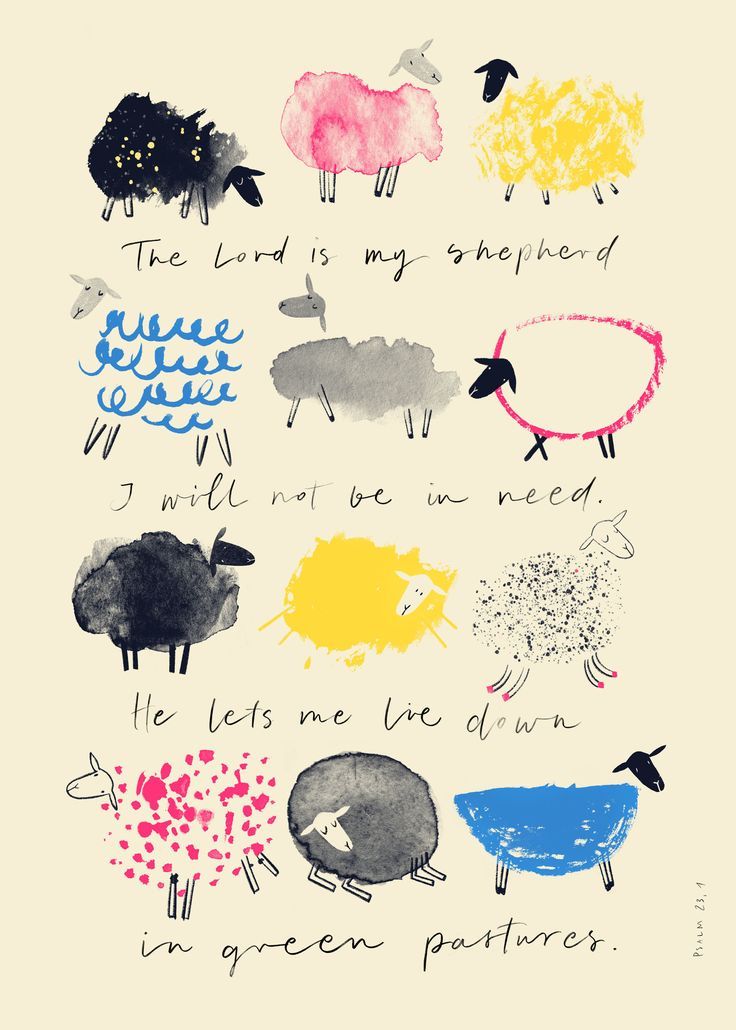 The Lord is my shepherd
I will not be in need.
He lets me lie down
in green pastures.
PSALM 23,1